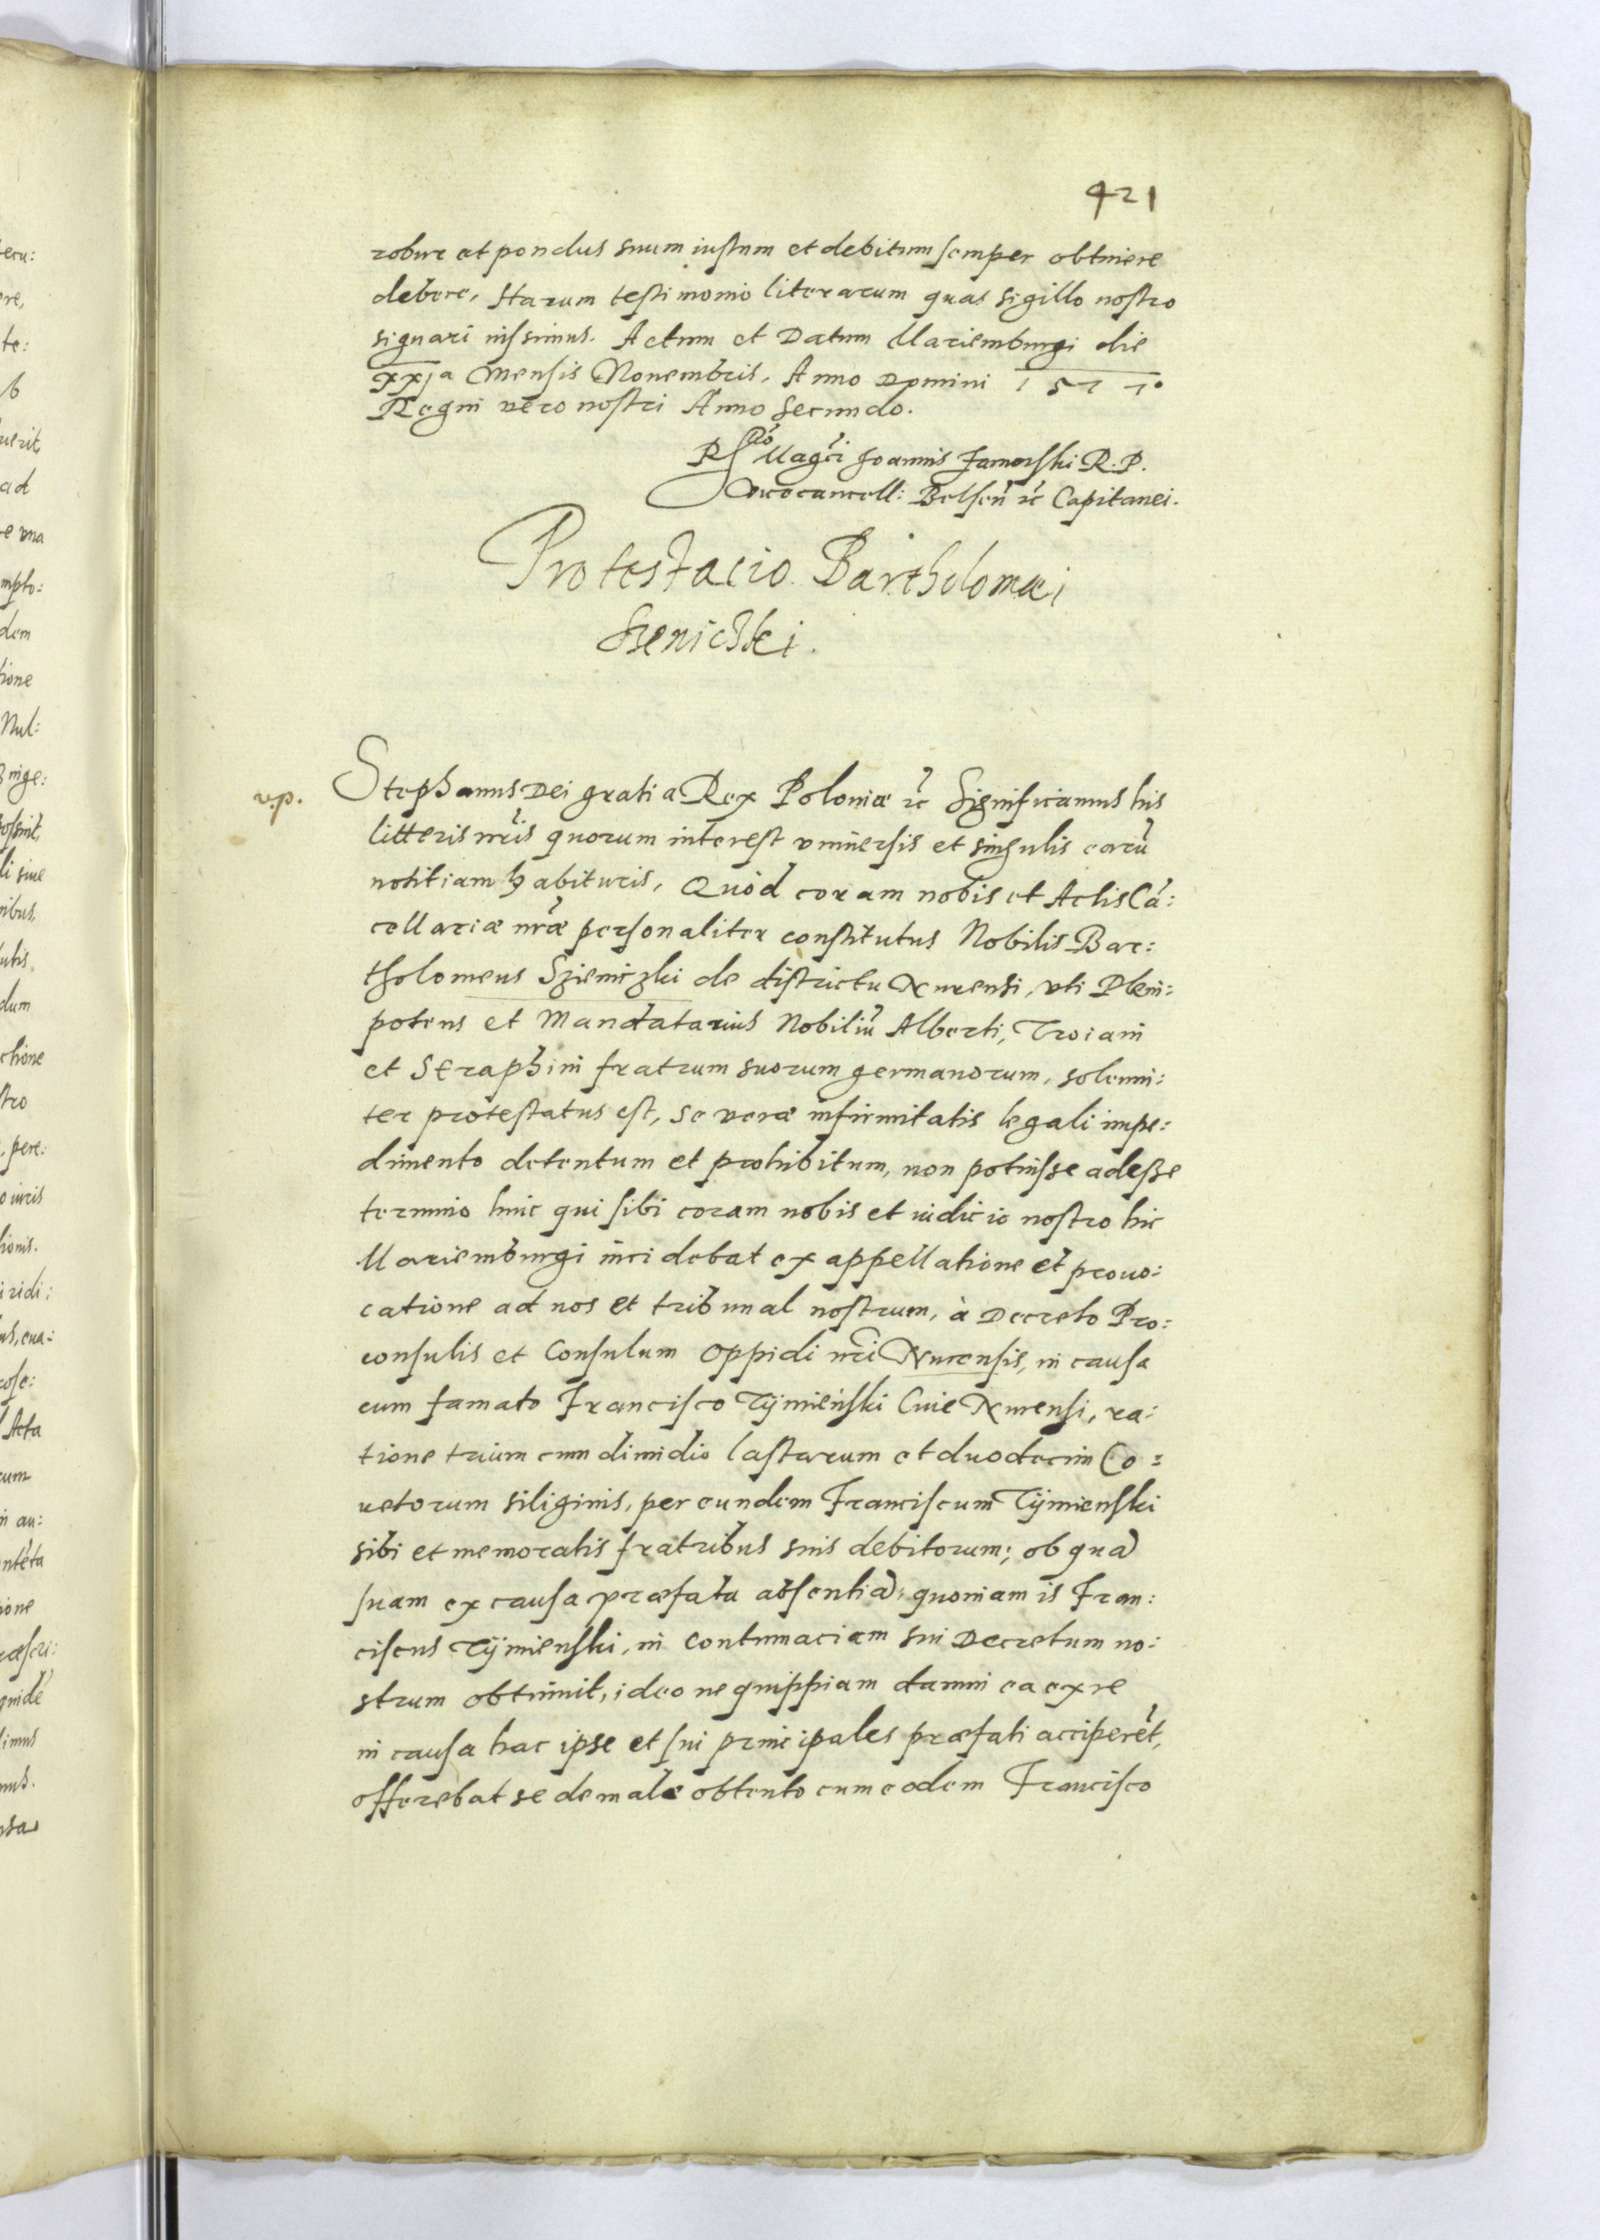 421
robur et pondus suum iustum et debitum semper obtinere
debere, Harum testimonio literarum quas sigillo nostro
signari iussimus. Actum et Datum Mariemburgi die
xxja Mensis Nouembris, Anno Domini 1577º
Regni vero nostri Anno Secundo.
Rº Magci Joannis Zamoyski R. P.
Vicecancell: Belsen̄ ꝛc Capitanei.
Protestacio Bartholomæi
Szeniczki.
v.p.
Stephanus Dei gratia Rex Poloniæ ꝛc Significamus his
litteris nr̄is quorum interest vniuersis et singulis earū
notitiam habituris, Quòd coram nobis et Actis Cā:
cellariæ nr̄æ personaliter constitutus Nobilis Bar:
tholomeus Szieniczki de districtu Nurensi, vti Pleni:
potens et Mandatarius Nobiliū Alberti, Troiani
et Seraphini fratrum suorum germanorum, solenni:
ter protestatus est, se veræ infirmitatis legali impe:
dimento detentum et prohibitum, non potuisse adesse
termino huic qui sibi coram nobis et iudicio nostro hic
Mariemburgi incidebat ex appellatione et prouo:
catione ad nos et tribunal nostrum, à Decreto Pro:
consulis et Consulum oppidi nr̄i Nurensis, in causa
cum famato Francisco Tÿmieński Ciue Nurensi, ra:
tione trium cum dimidio lastarum et duodecim Co:
retorum siliginis, per eundem Franciscum Tÿmienski
sibi et memoratis fratribus suis debitorum; ob quā
suam ex causa præfata absentiā, quoniam is Fran:
ciscus Tÿmienski, in contumaciam sui Decretum no:
strum obtinuit, ideo ne quippiam damni ea ex re
in causa hac ipse et sui principales præfati acciperēt,
offerebat se de male obtento cum eodem Francisco